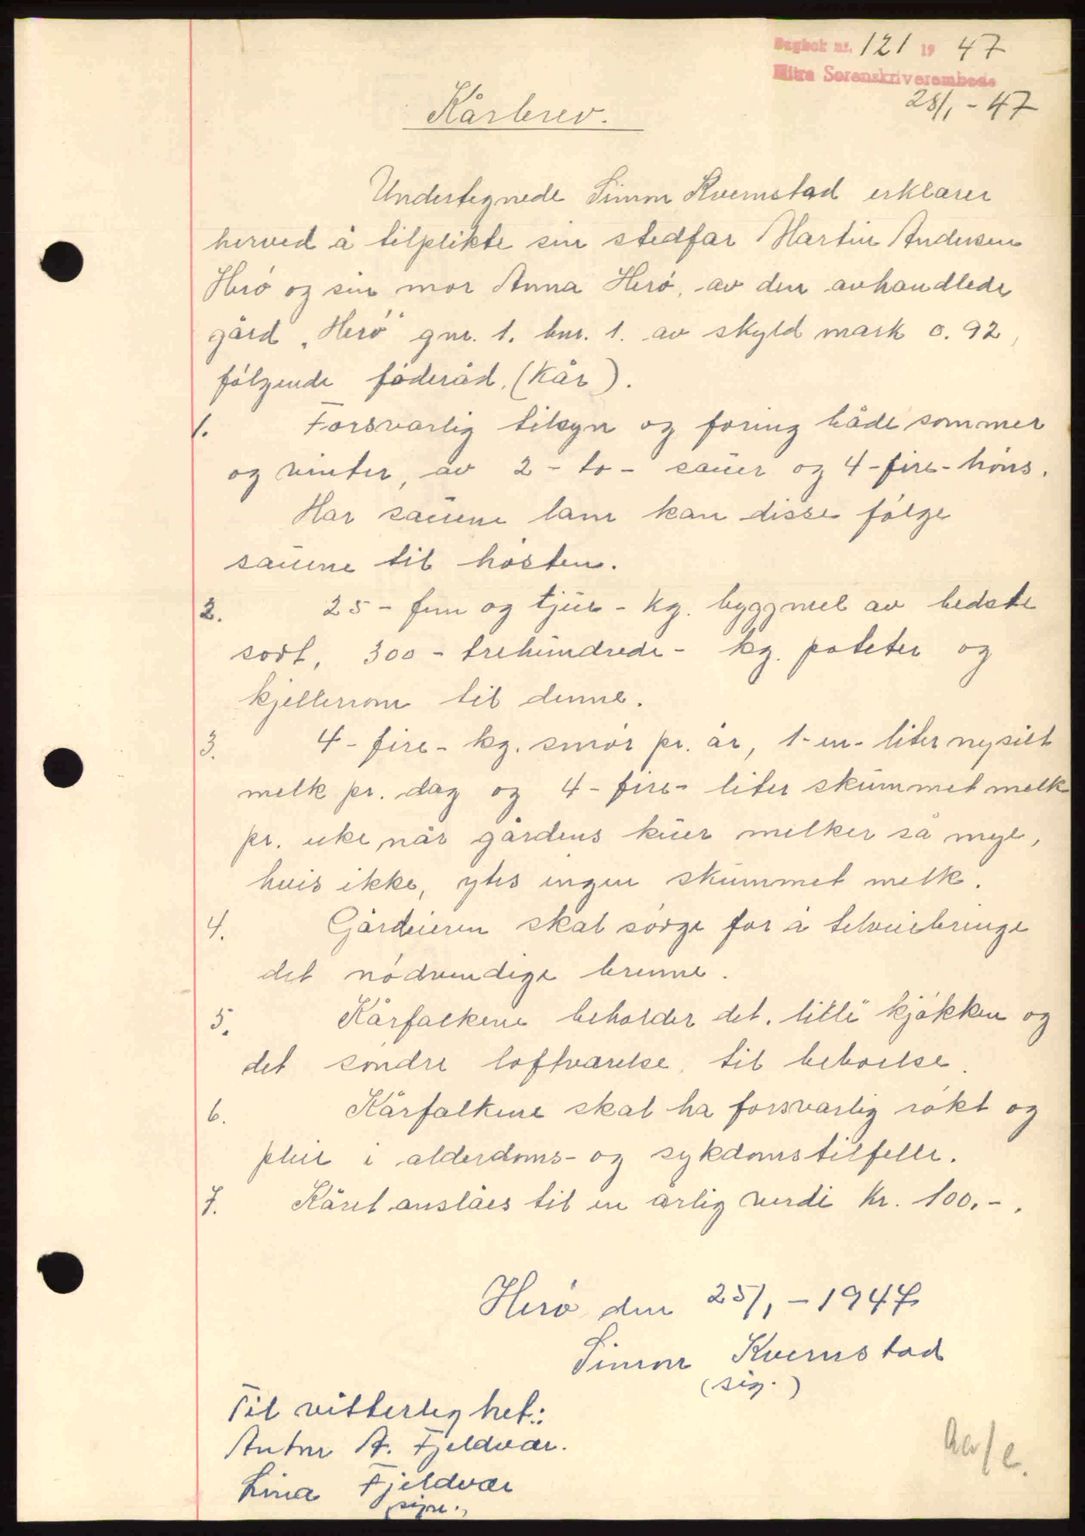 Dagbok nr. 121 19 47
Hitra Sorenskriverembede
28/1 - 47
Kårbrev.
Undertegnede Simon Kvernstad erklærer
herved å tilplikte sin stedfar Martin Andersen
Herø og sin mor Anna Herø, av den avhandlede
gård „Herø" gnr. 1. bnr. 1. av skyld mark 0.92,
følgende føderåd, (Kår).
1. Forsvarlig tilsyn og foring både sommer
og vinter, av 2 - to - sauer og 4 - fire - høns.
Har sauene lam kan disse følge
sauene til høsten.
2. 25 - fem og tjue - kg. byggmel av bedste
sort, 300 - trehundrede - kg. poteter og
kjellerrom til denne.
3. 4 - fire - kg. smør pr. år, 1 - en - liter nysilt
melk pr. dag og 4 - fire - liter skummet melk
pr. uke, når gårdens kuer melker så mye,
hvis ikke, ytes ingen skummet melk.
4. Gårdeieren skal sørge for å tilveiebringe
det nødvendige brenne.
5. Kårfolkene beholder det. lille kjøkken og
det søndre loftværelse, til beboelse.
6. Kårfolkene skal ha forsvarlig røkt og
pleie i alderdoms- og sykdomstilfelle.
7. Kåret anslåes til en årlig verdi Kr. 100,- .
Herø den 25/1 - 1947
Simon Kvernstad
(sig.)
Til vitterlighet.:
Anton A. Fjeldvær.
Lina Fjeldvær
(sign.)